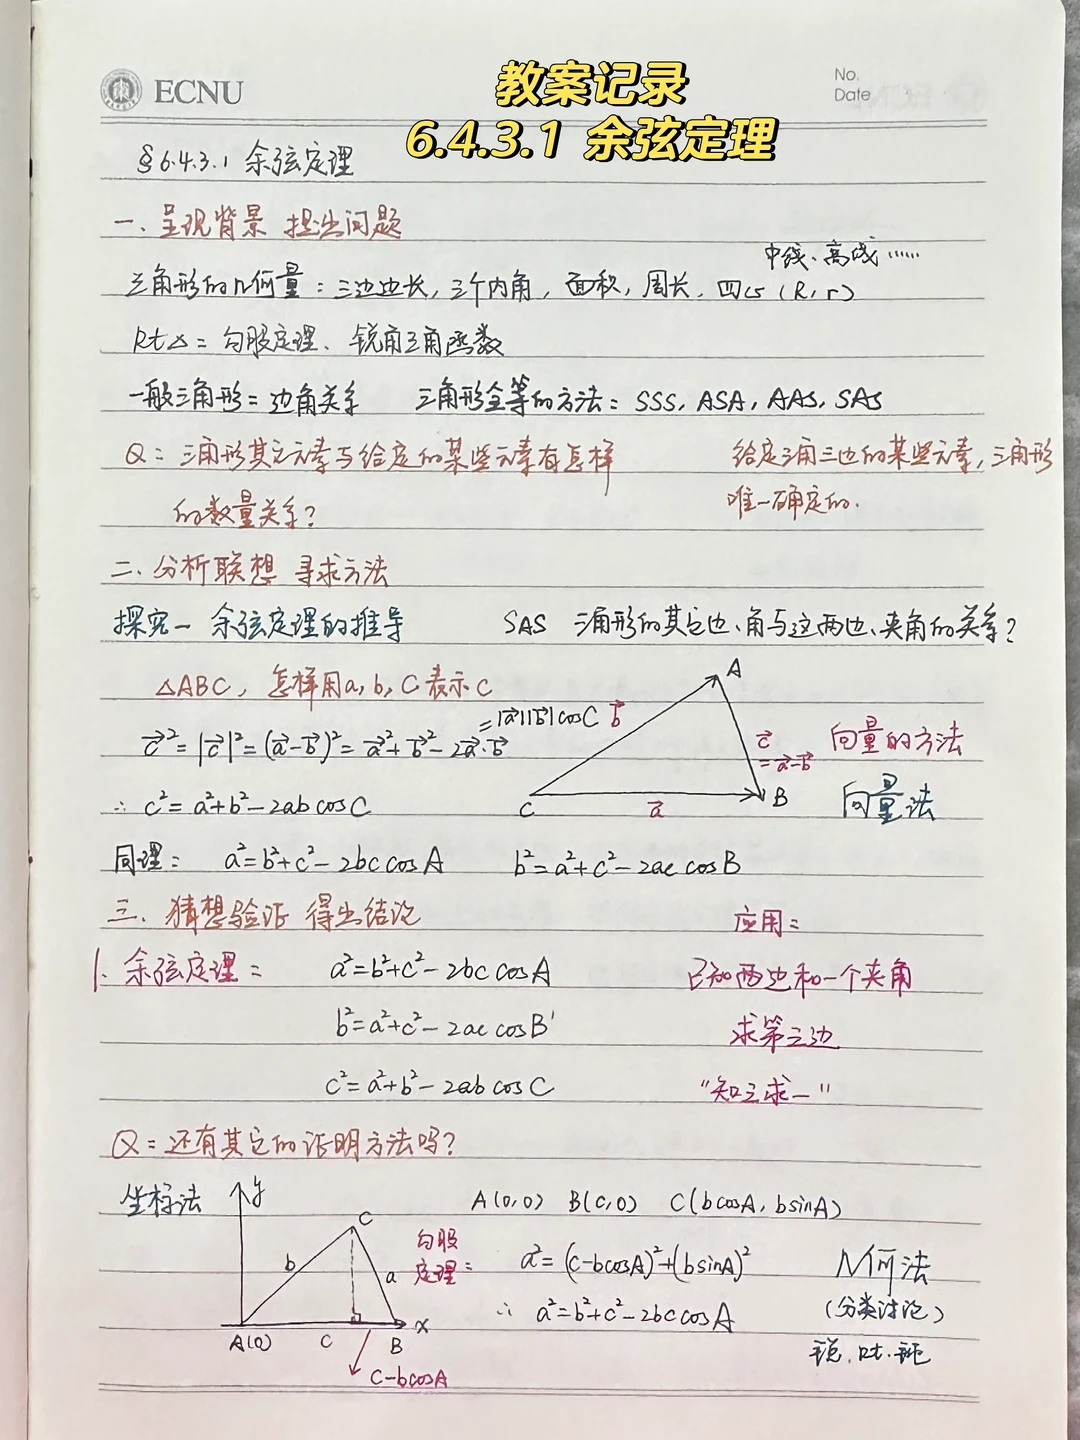 ECNU
教案记录
6.4.3.1 余弦定理
No.
Date
§6.4.3.1 余弦定理
一、呈现背景 提出问题
中线、高线……
三角形的几何量：三边边长，三个内角，面积，周长，四心（R，r）
Rt△：勾股定理、锐角三角函数
一般三角形：边角关系 三角形全等的方法：SSS，ASA，AAS，SAS
Q：三角形其它元素与给定的某些元素有怎样
的数量关系？
给定三角三边的某些元素，三角形
唯一确定的．
二、分析联想 寻求方法
探究一 余弦定理的推导 SAS 三角形的其它边、角与这两边、夹角的关系？
△ABC，怎样用a，b，C表示c
=|a⃗||b⃗|cosC
c⃗²=|c⃗|²=(a⃗-b⃗)²=a⃗²+b⃗²-2a⃗·b⃗
∴ c²=a²+b²-2abcosC
A
b⃗
c⃗
=a⃗-b⃗
C
a⃗
B
向量的方法
向量法
同理： a²=b²+c²-2bccosA b²=a²+c²-2accosB
三、猜想验证 得出结论
1.余弦定理： a²=b²+c²-2bccosA
b²=a²+c²-2accosB
c²=a²+b²-2abcosC
应用：
已知两边和一个夹角
求第三边
“知三求一”
Q：还有其它的证明方法吗？
坐标法
y
C
b
a
A(0)
c
B
x
c-bcosA
A(0,0) B(c,0) C(bcosA, bsinA)
勾股
定理：
a²=(c-bcosA)²+(bsinA)²
∴ a²=b²+c²-2bccosA
几何法
（分类讨论）
锐、Rt、钝